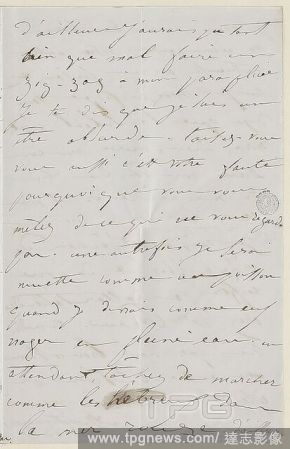 d'ailleurs j'aurais pu tant
bien que mal faire un
zig-zag à mon parapluie
je te dis que je suis un
être absurde. taisez-vous
vous aussi c'est votre faute
pourquoi que vous vous
mêlez de ce qui ne vous regarde
pas. une autrefois je serai
muette comme un poisson
quand je devrais comme eux
nager en pleine eau. en
attendant, tâchez de marcher
comme les hébreux dans
la mer rouge
TPG
www.tpgnews.com / 達志影像